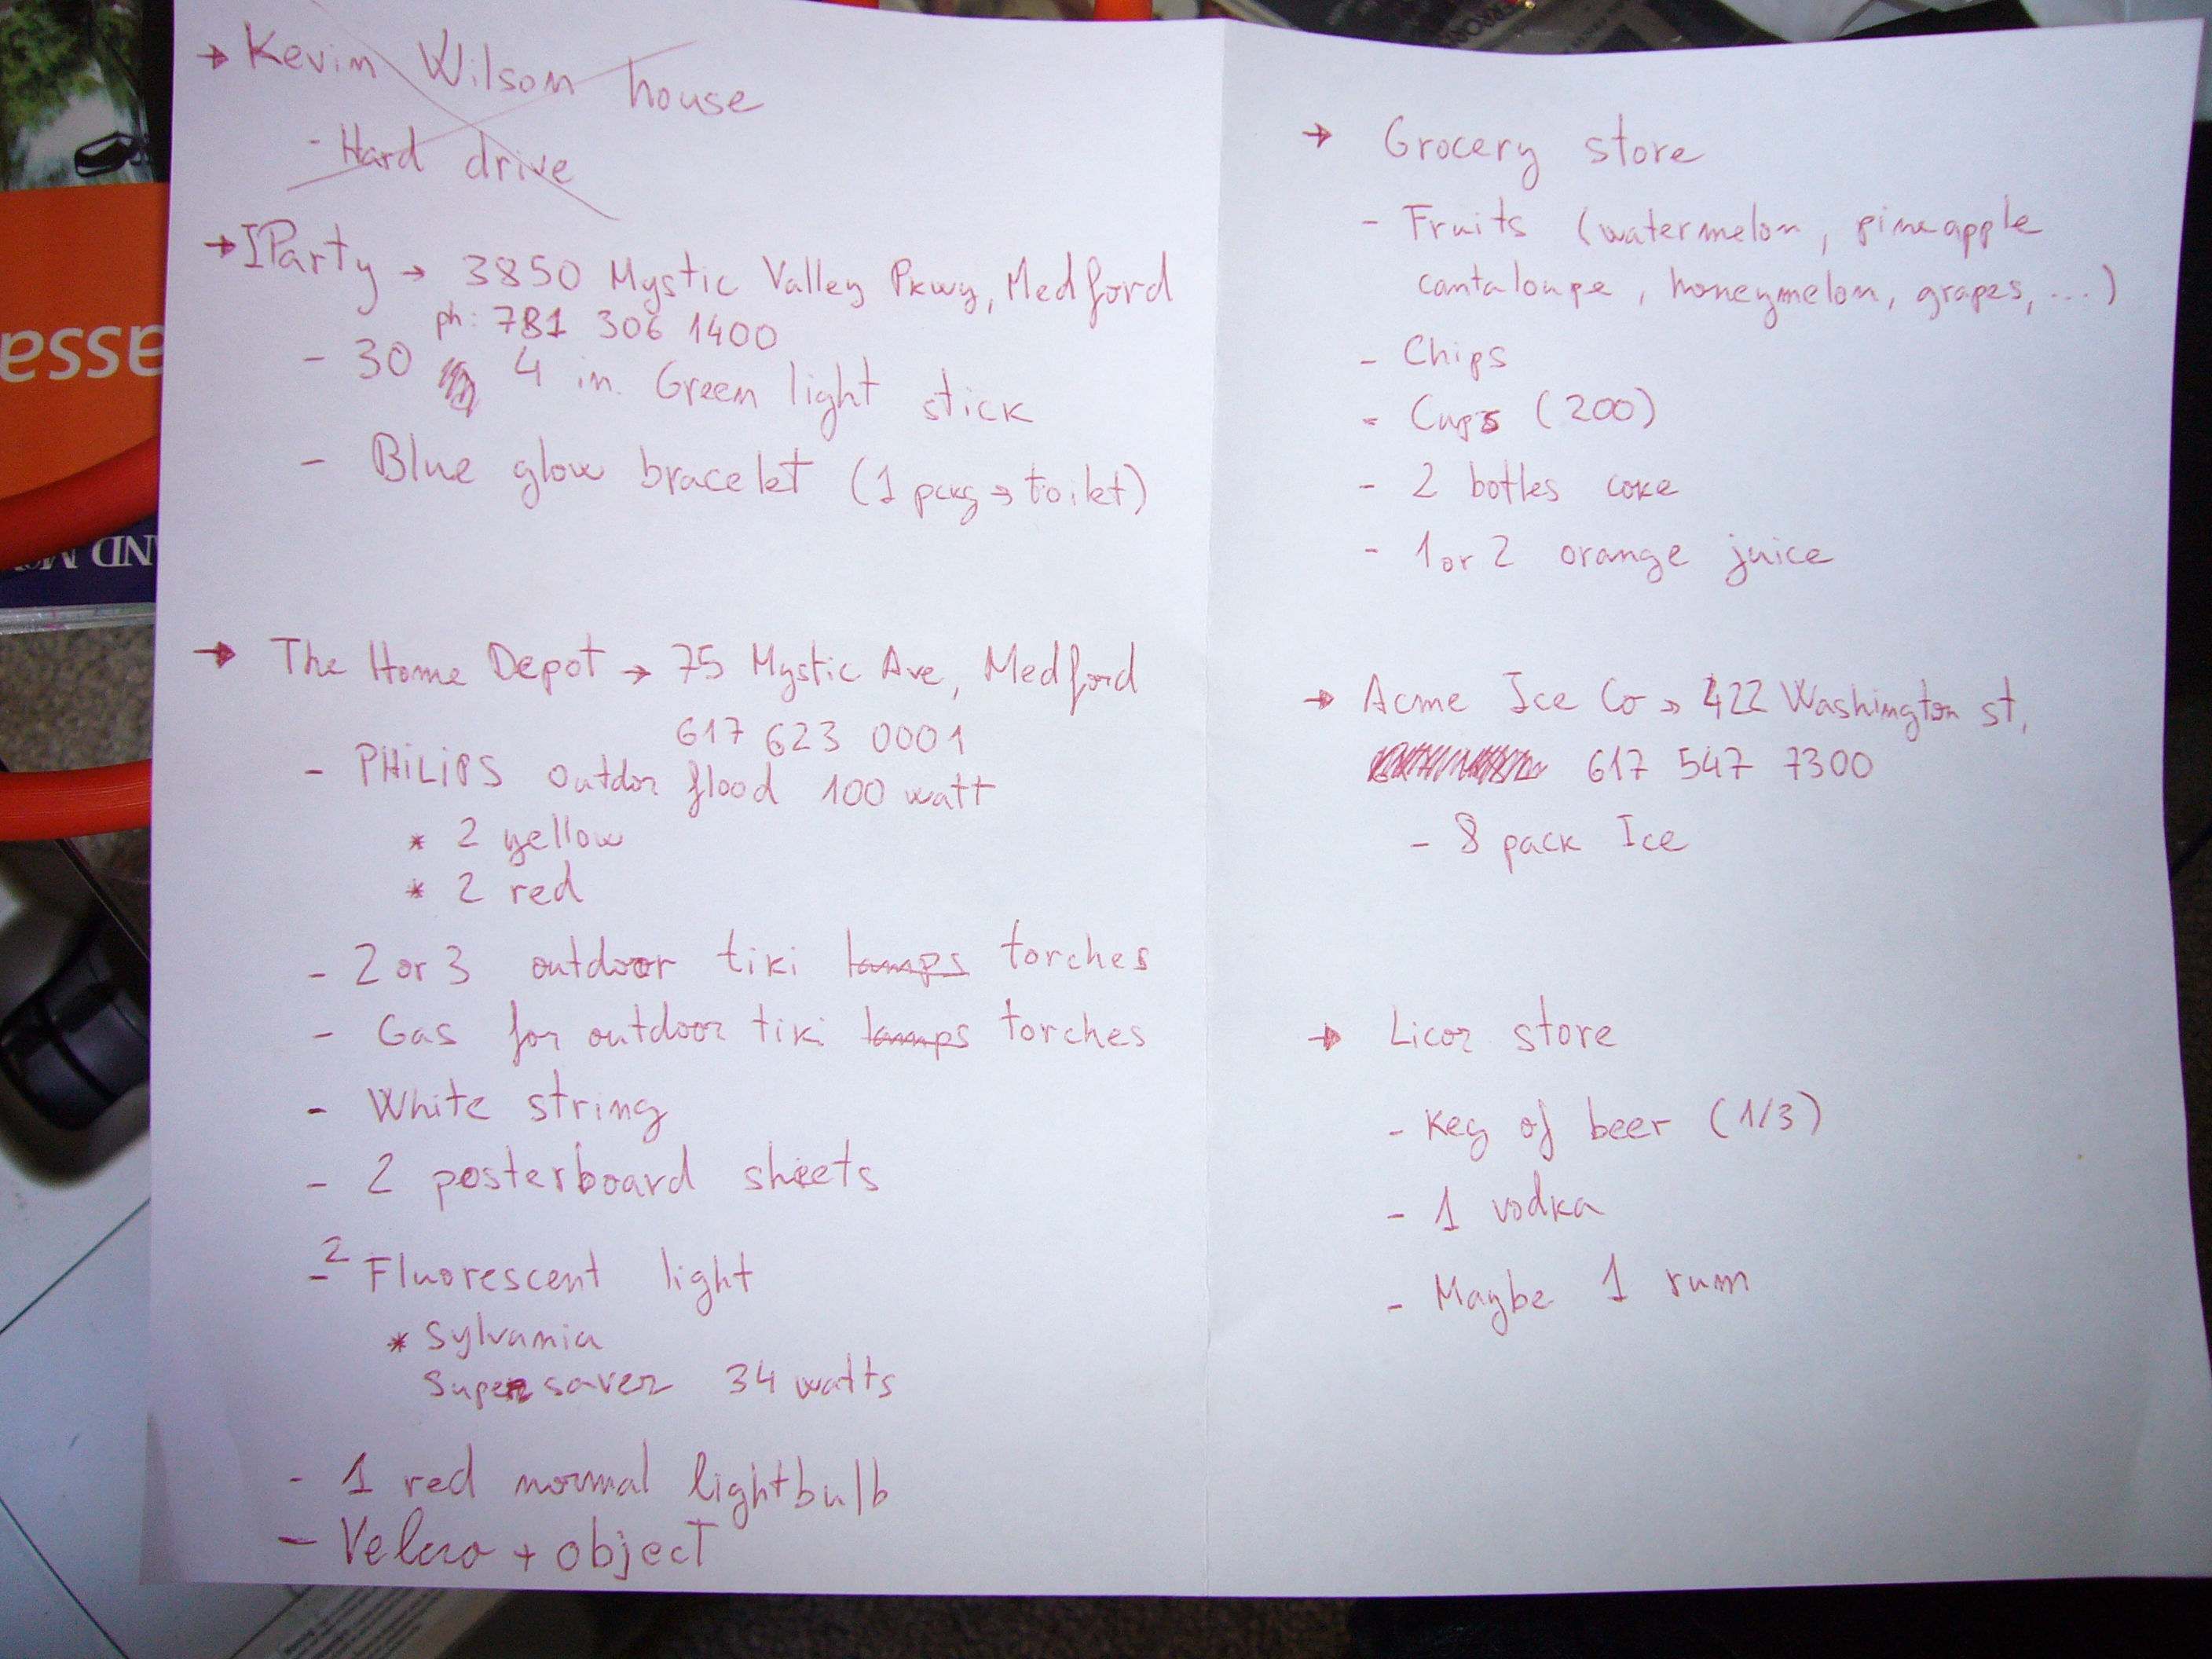 → Kevin Wilson house
- Hard drive
→ IParty → 3850 Mystic Valley Pkwy, Medford
ph: 781 306 1400
- 30 4 in. Green light stick
- Blue glow bracelet (1 pckg → toilet)
→ The Home Depot → 75 Mystic Ave, Medford
617 623 0001
- PHiLiPS outdor flood 100 watt
* 2 yellow
* 2 red
- 2 or 3 outdoor tiki lamps torches
- Gas for outdoor tiki lamps torches
- White string
- 2 posterboard sheets
- 2 Fluorescent light
* Sylvania
Super saver 34 watts
- 1 red normal lightbulb
- Velcro + object
→ Grocery store
- Fruits (watermelon, pineapple
cantaloupe, honeymelon, grapes, ...)
- Chips
- Cups (200)
- 2 botles coke
- 1 or 2 orange juice
→ Acme Ice Co → 422 Washington st,
617 547 7300
- 8 pack Ice
→ Licor store
- Keg of beer (1/3)
- 1 vodka
- Maybe 1 rum
esse